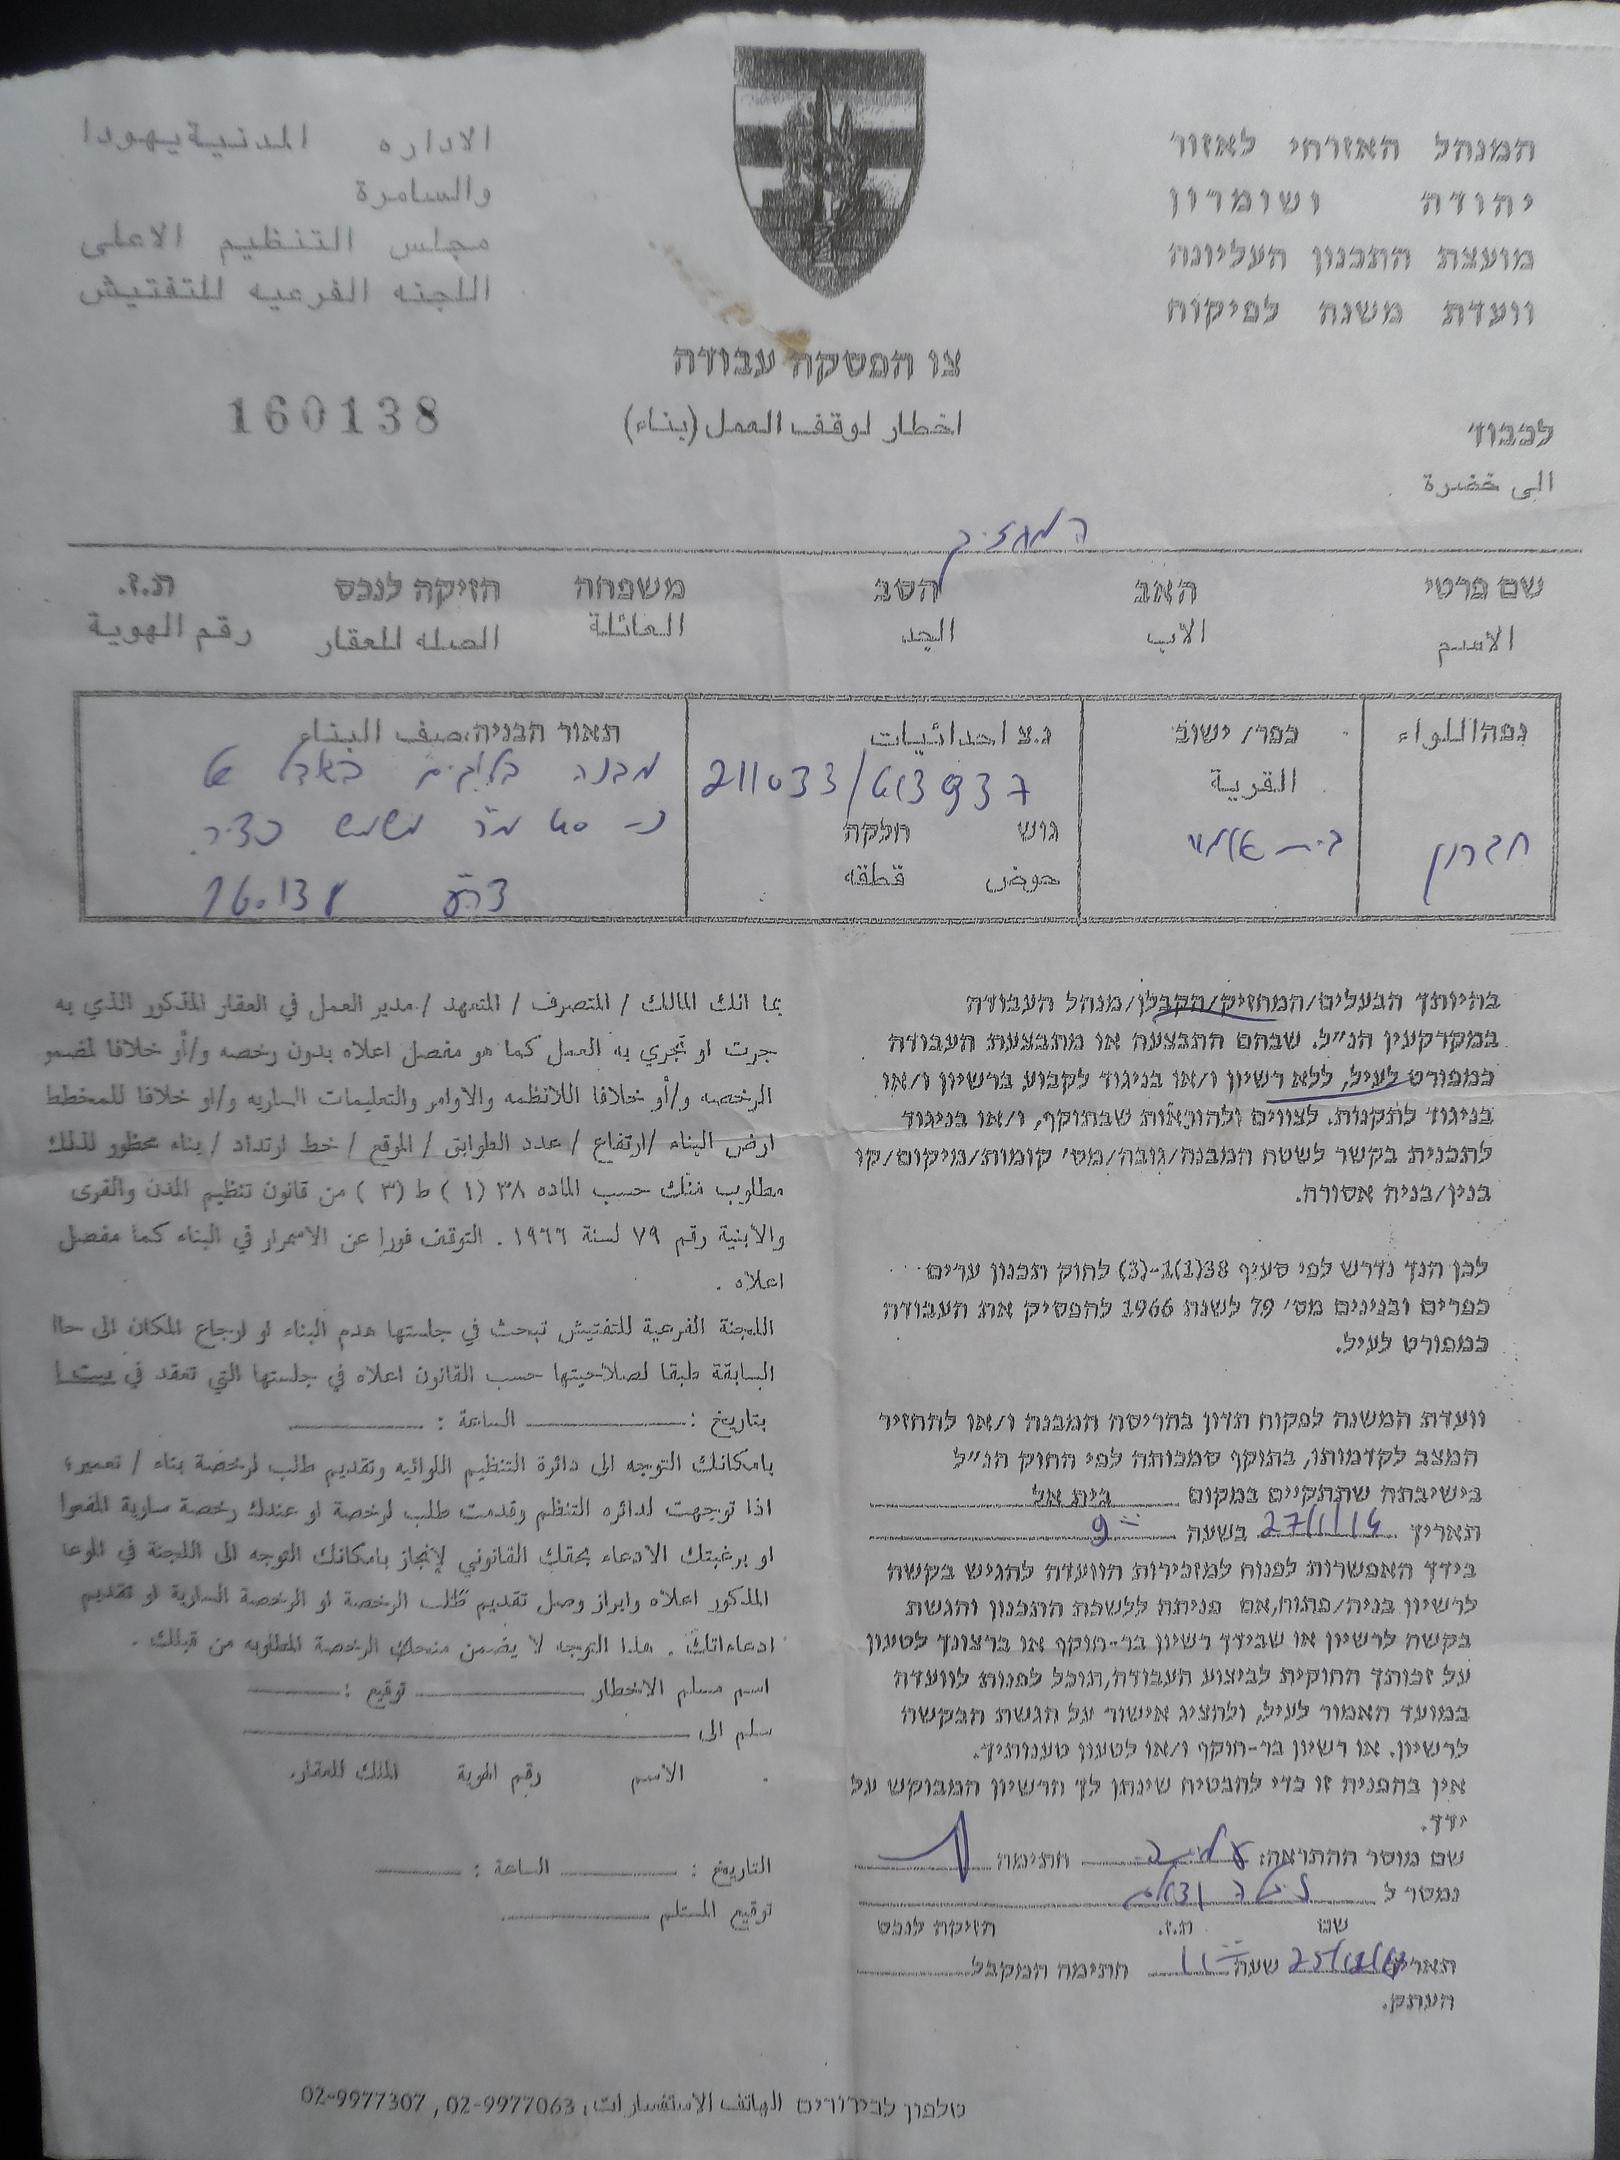 המנהל האזרחי לאזור
יהודה ושומרון
מועצת התכנון העליונה
וועדת משנה לפיקוח
الاداره المدنية يهودا
والسامرة
مجلس التنظيم الاعلى
اللجنه الفرعيه للتفتيش
צו הפסקה עבודה
اخطار لوقف العمل (بناء)
160138
לכבוד
الى حضرة
המחזיק
שם פרטי האב הסב משפחה חזיקה לנכס ת.ז.
الاسم الاب الجد العائلة الصله للعقار رقم الهوية
נפה اللواء
חברון
כפר/ ישוב
القرية
בית
נ.צ احداثيات
211033/613937
גוש חלקה
حوض قطقه
תאור הבניה، صيف البناء
מבנה
מ"ר
160138
בהיותך הבעלים/המחזיק/הקבלן/מנהל העבודה
במקרקעין הנ״ל. שבהם התבצעה או מתבצעת העבודה
כמפורט לעיל, ללא רשיון ו/או בניגוד לקבוע ברשיון ו/או
בניגוד לתקנות. לצווים ולהוראות שבתוקף, ו/או בניגוד
לתכנית בקשר לשטח המבנה/גובה/מס׳ קומות/מיקום/קו
בנין/בניה אסורה.
לכן הנך נדרש לפי סעיף 38(1)1-(3) לחוק תכנון ערים
כפרים ובנינים מס׳ 79 לשנת 1966 להפסיק את העבודה
כמפורט לעיל.
וועדת המשנה לפקוח תדון בהריסת המבנה ו/או להחזיר
המצב לקדמותו, בתוקף סמכותה לפי החוק הנ״ל
בישיבתה שתתקיים במקום בית אל
תאריך 27/1/14 בשעה 9:00
בידך האפשרות לפנות למזכירות הוועדה להגיש בקשה
לרשיון בניה/פתוח, אם פניתה ללשכת התכנון והגשת
בקשה לרשיון או שבידך רשיון בר-תוקף או ברצונך לטעון
על זכותך החוקית לביצוע העבודה, תוכל לפנות לוועדה
במועד האמור לעיל, ולהציג אישור על הגשת הבקשה
לרשיון. או רשיון בר-תוקף ו/או לטעון טענותיך.
אין בהפניה זו כדי להבטיח שינתן לך הרשיון המבוקש על
ידך.
שם מוסר ההתראה: חתימה
נמסר ל
שם ת.ז. חזיקה לנכס
תאריך שעה 11:00 חתימה המקבל
העתק.
بما انك المالك / المتصرف / المتعهد / مدير العمل في العقار المذكور الذي به
جرت او تجري به العمل كما هو مفصل اعلاه بدون رخصه و/أو خلافا لمضمو
الرخصه و/أو خلافا اللانظمه والاوامر والتعليمات الساريه و/او خلافا للمخطط
ارض البناء /ارتفاع / عدد الطوابق / الموقع / خط ارتداد / بناء محظور لذلك
مطلوب منك حسب الماده ٣٨ (١ ) ط (٣ ) من قانون تنظيم المدن والقرى
والأبنية رقم ٧٩ لسنة ١٩٦٦ . التوقف فورا عن الاسمرار في البناء كما مفصل
اعلاه .
اللجنة الفرعية للتفتيش تبحث في جلستها هدم البناء او ارجاع المكان الى حاا
السابقة طبقا لصلاحيتها حسب القانون اعلاه في جلستها التي تعقد في
بتاريخ : الساعة :
بامكانك التوجه الى دائرة التنظيم اللوائيه وتقديم طلب لرخصة بناء / تعمير؛
اذا توجهت لدائره التنظم وقدمت طلب لرخصة او عندك رخصة سارية المفعوا
او برغبتك الادعاء بحقك القانوني لإنجاز بامكانك التوجه الى اللجنة في الموعا
المذكور اعلاه وابراز وصل تقديم طلب الرخصة او الرخصة السارية او تقديم
ادعاءاتك . هذا التوجه لا يضمن منحك الرخصة المطلوبه من قبلك .
اسم مسلم الاخطار توقيع :
سلم الى
الاسم رقم الهوية الملك للعقار.
التاريخ : الساعة :
توقيع المستلم
טלפון לבירורים الهاتف الاستفسارات: 02-9977063 , 02-9977307